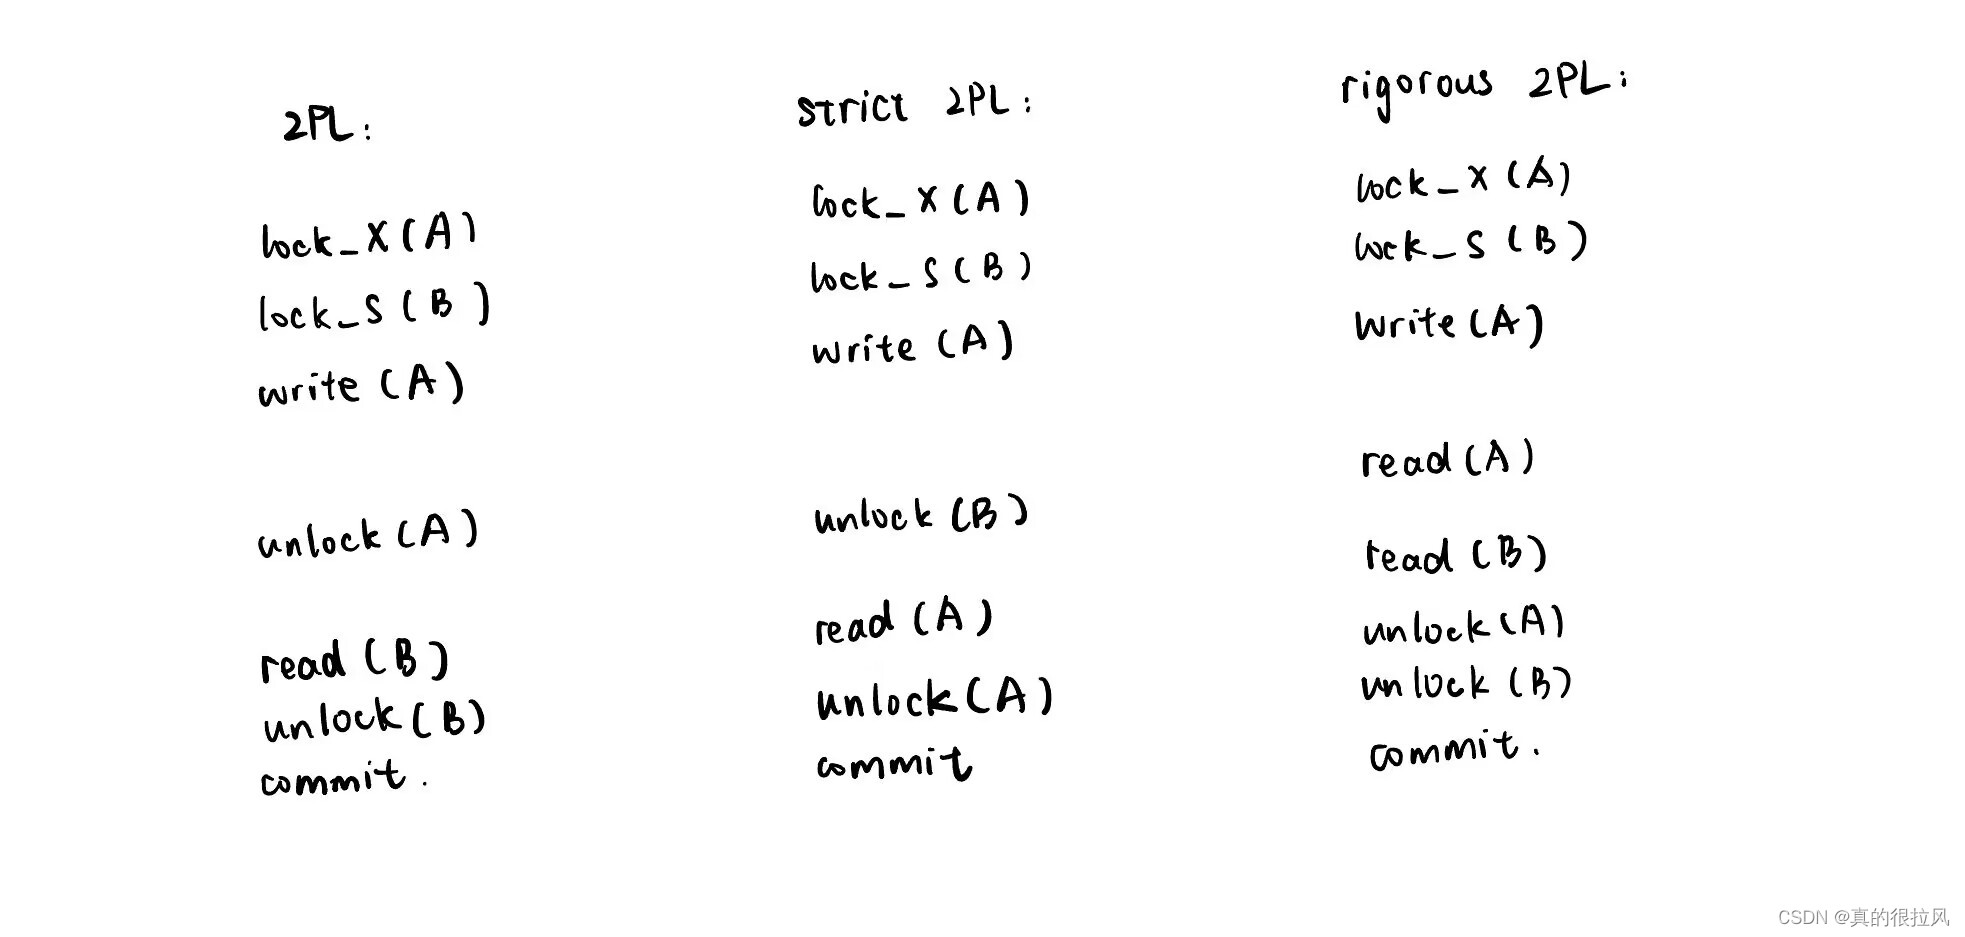 2PL:
lock_X(A)
lock_S(B)
write(A)
unlock(A)
read(B)
unlock(B)
commit.
strict 2PL:
lock_X(A)
lock_S(B)
write(A)
unlock(B)
read(A)
unlock(A)
commit
rigorous 2PL:
lock_X(A)
lock_S(B)
write(A)
read(A)
read(B)
unlock(A)
unlock(B)
commit.
CSDN @真的很拉风